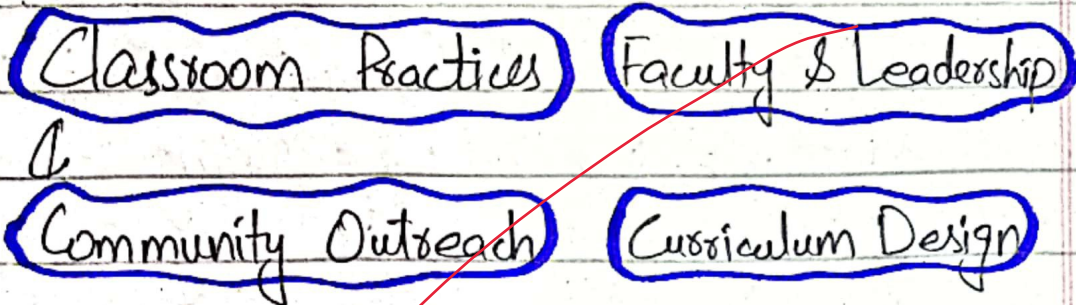 Classroom Practices Faculty & Leadership
Community Outreach Curriculum Design